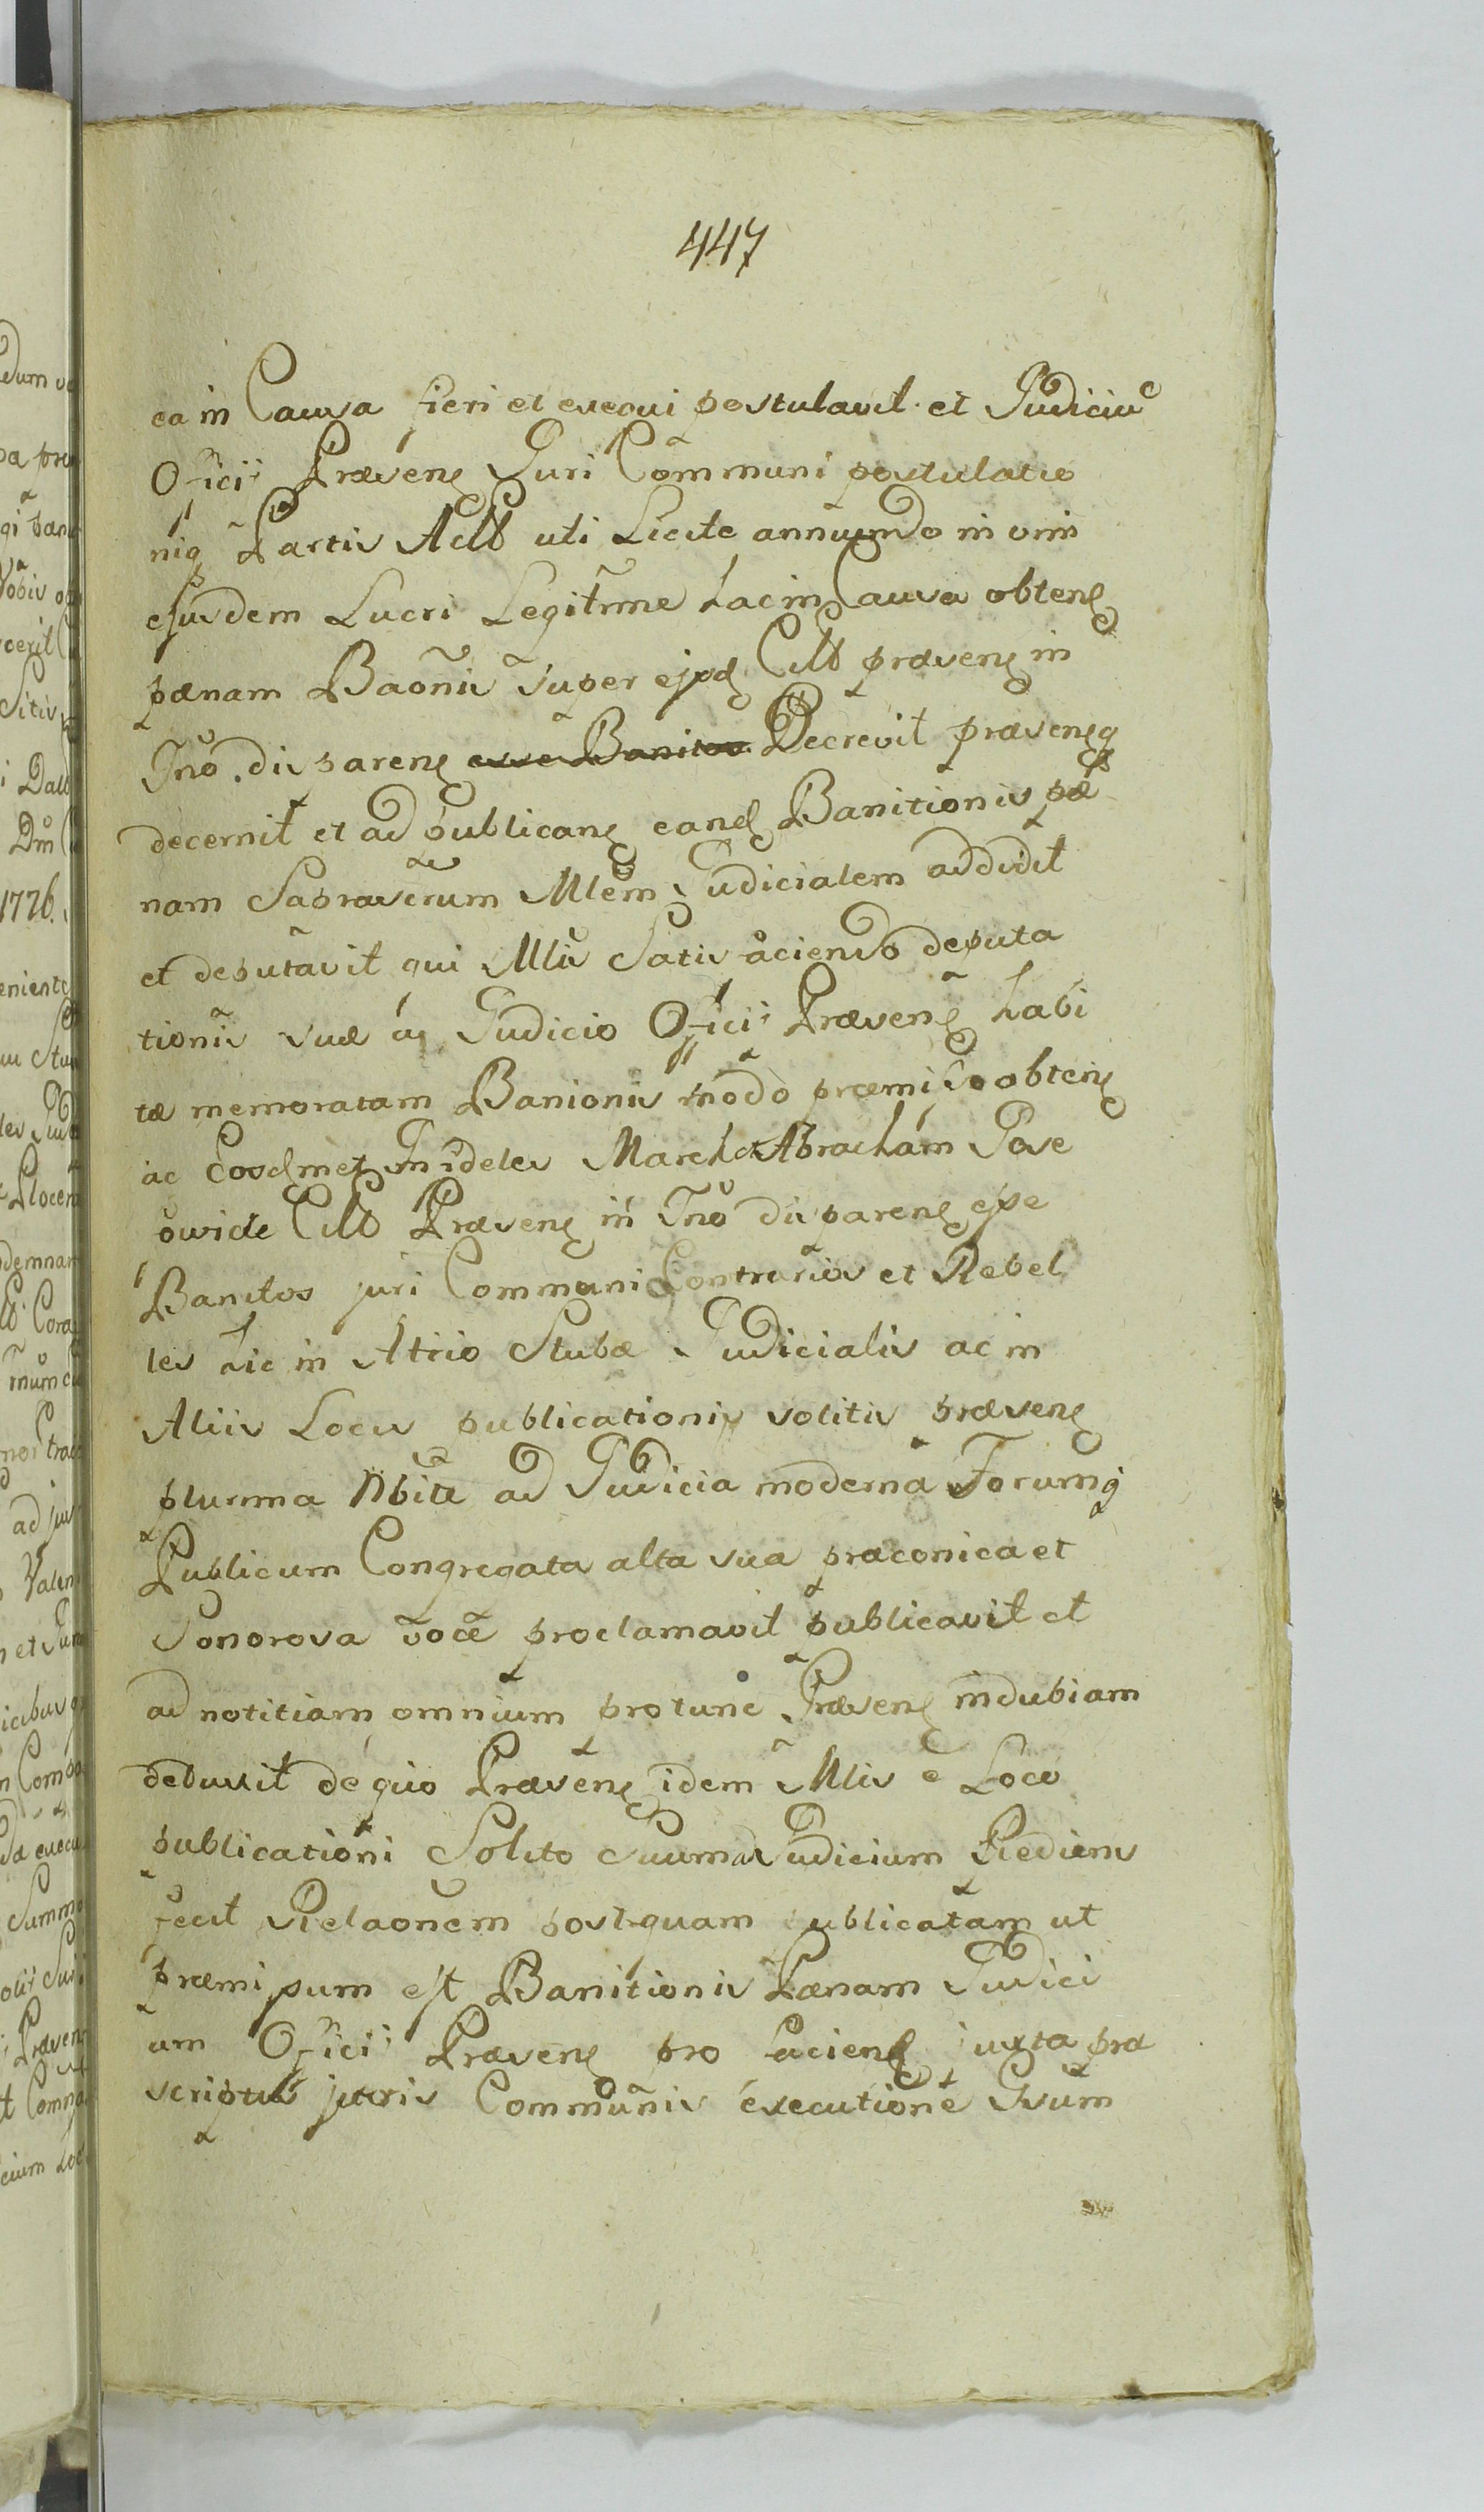 447
ea in Causa fieri et exequi postulavit et Judiciũ
Officii Præsens Juri Cõmmuni postulatio
niq Partis Actt uti Licite annuendo in vim
ejusdem Lucri Legitĩme hac in Causa obtent
pænam Baõnis super ejsd Citt præsens in
Tnõ disparens esse Banitos Decrevit præsensq
decernit et ad publicand eand Banitionis pæ
nam Saprawerum Mlẽm Judicialem addidit
et deputavit qui Mlis Satisfaciendo deputa
tionis suæ in Judicio Officii Præsenti habi
tæ memoratam Banionis modo præmisso obtent
ac Eosdmet Infideles March et Abracham Jose
owicze Citt Præsens in Tnõ disparens esse
Banitos juri Communi Contrarios et Rebel
les hic in Atrio Stubæ Judicialis ac in
Aliis Locis publicationis solitis præsens
plurima Nbĩta ad Judicia moderna Forumq
Publicum Congregata alta sua præconica et
Sonorosa voce proclamavit publicavit et
ad notitiam omnium pro tunc Præsens indubiam
deduxit de quo Præsens idem Mlis e Loco
publicationi Solito Suum ad Judicium Rediens
fecit Relaõnem postquam publicatam ut
præmissum est Banitionis Pænam Judici
um Officii Præsens pro faciend juxta præ
scriptũ juris Communis executione Gsum